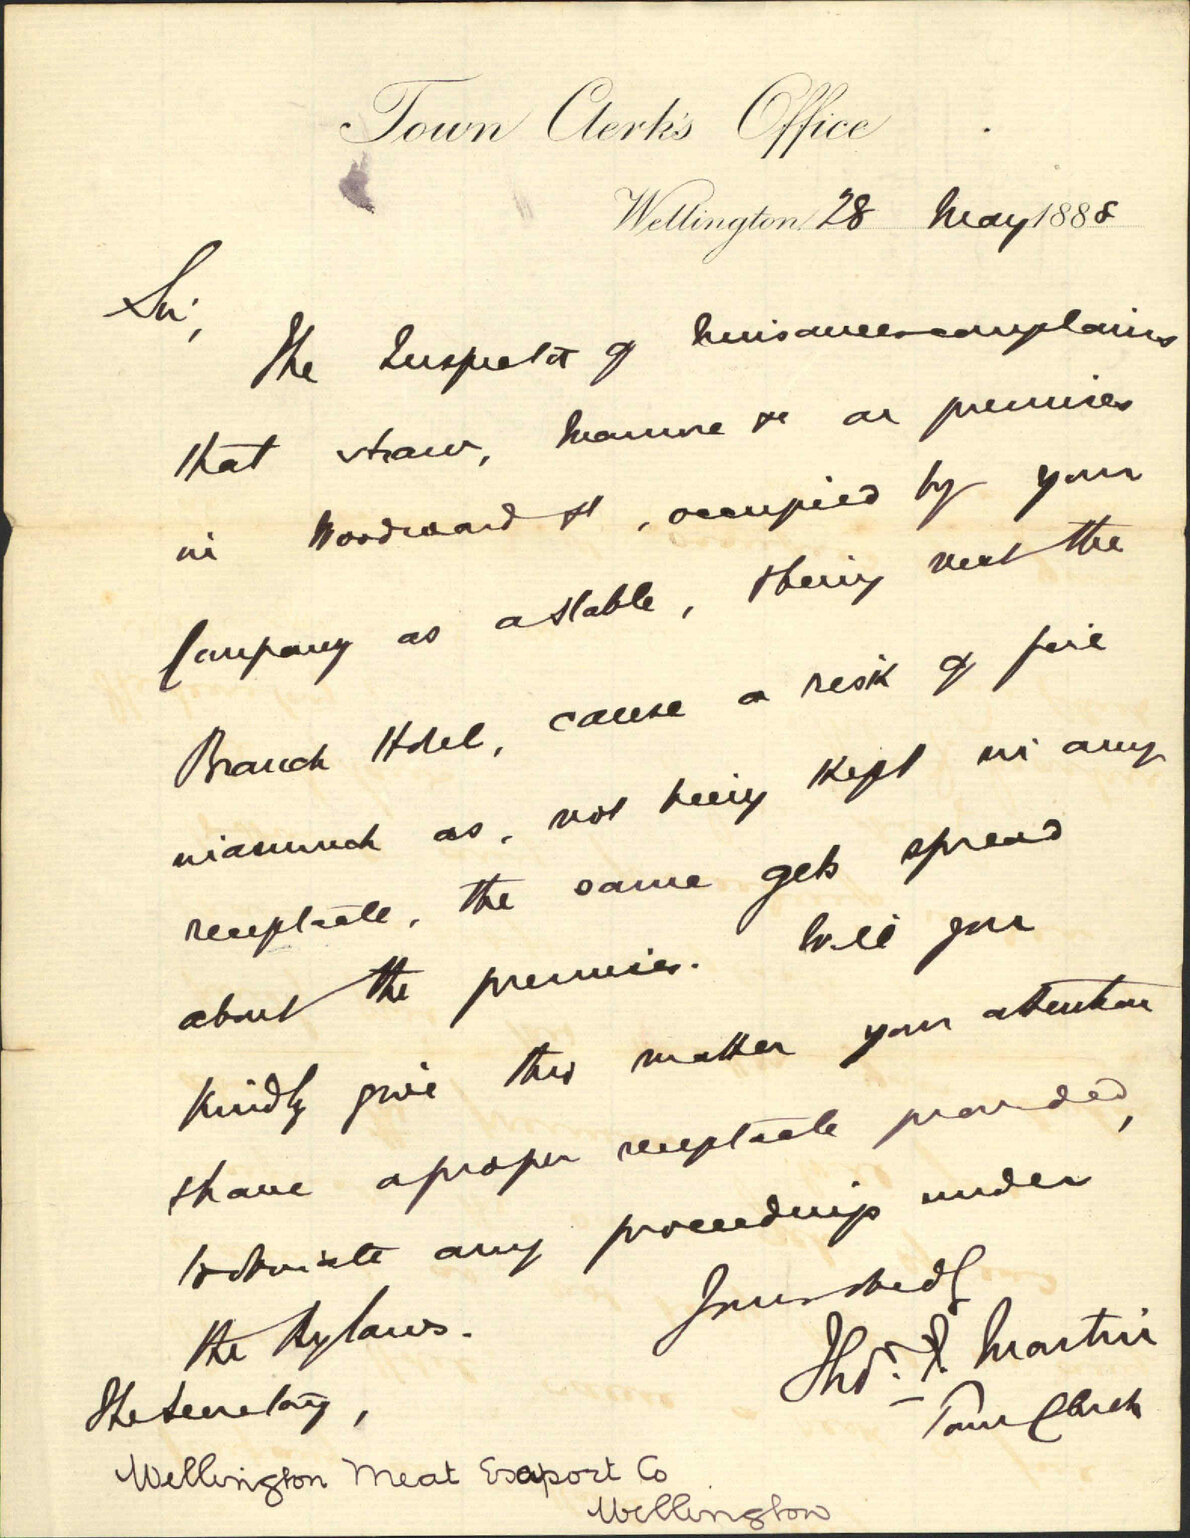 Town Clerk's Office
Wellington 28 May 1888
Sir,
The Inspector of Nuisances complains
that straw, manure &c on premises
in Woodward St, occupied by your
Company as a stable, & being next the
Branch Hotel, cause a risk of fire
inasmuch as, not being kept in any
receptacle, the same gets spread
about the premises. Will you
kindly give this matter your attention
& have a proper receptacle provided,
to obviate any proceedings under
the Bylaws.
Yours obedly
Thos. F. Martin
Town Clerk
The Secretary,
Wellington Meat Export Co
Wellington